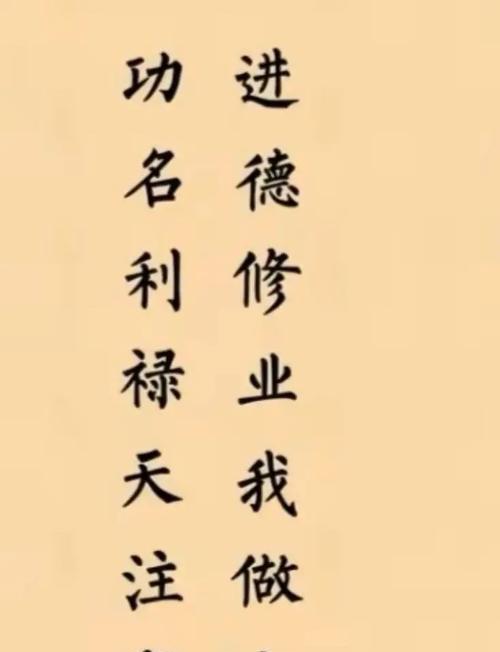 进德修业我做
功名利禄天注